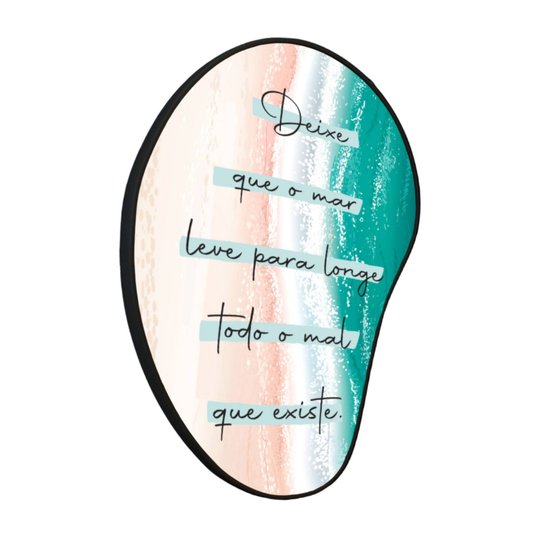 Deixe
que o mar
leve para longe
todo o mal
que existe.